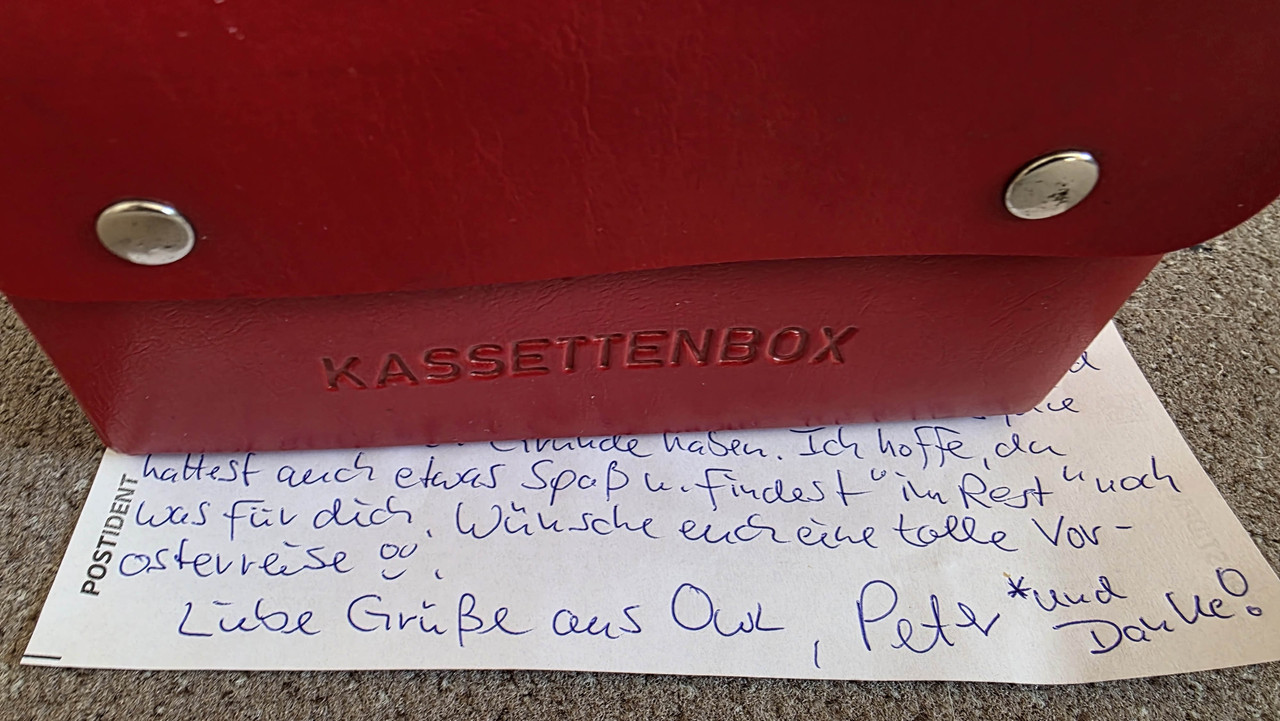 KASSETTENBOX
haben. Ich hoffe, du
hattest auch etwas Spaß u. findest "im Rest" noch
was für dich. Wünsche euch eine tolle Vor-
osterreise
Liebe Grüße aus OWL, Peter *und
Danke!
POSTIDENT